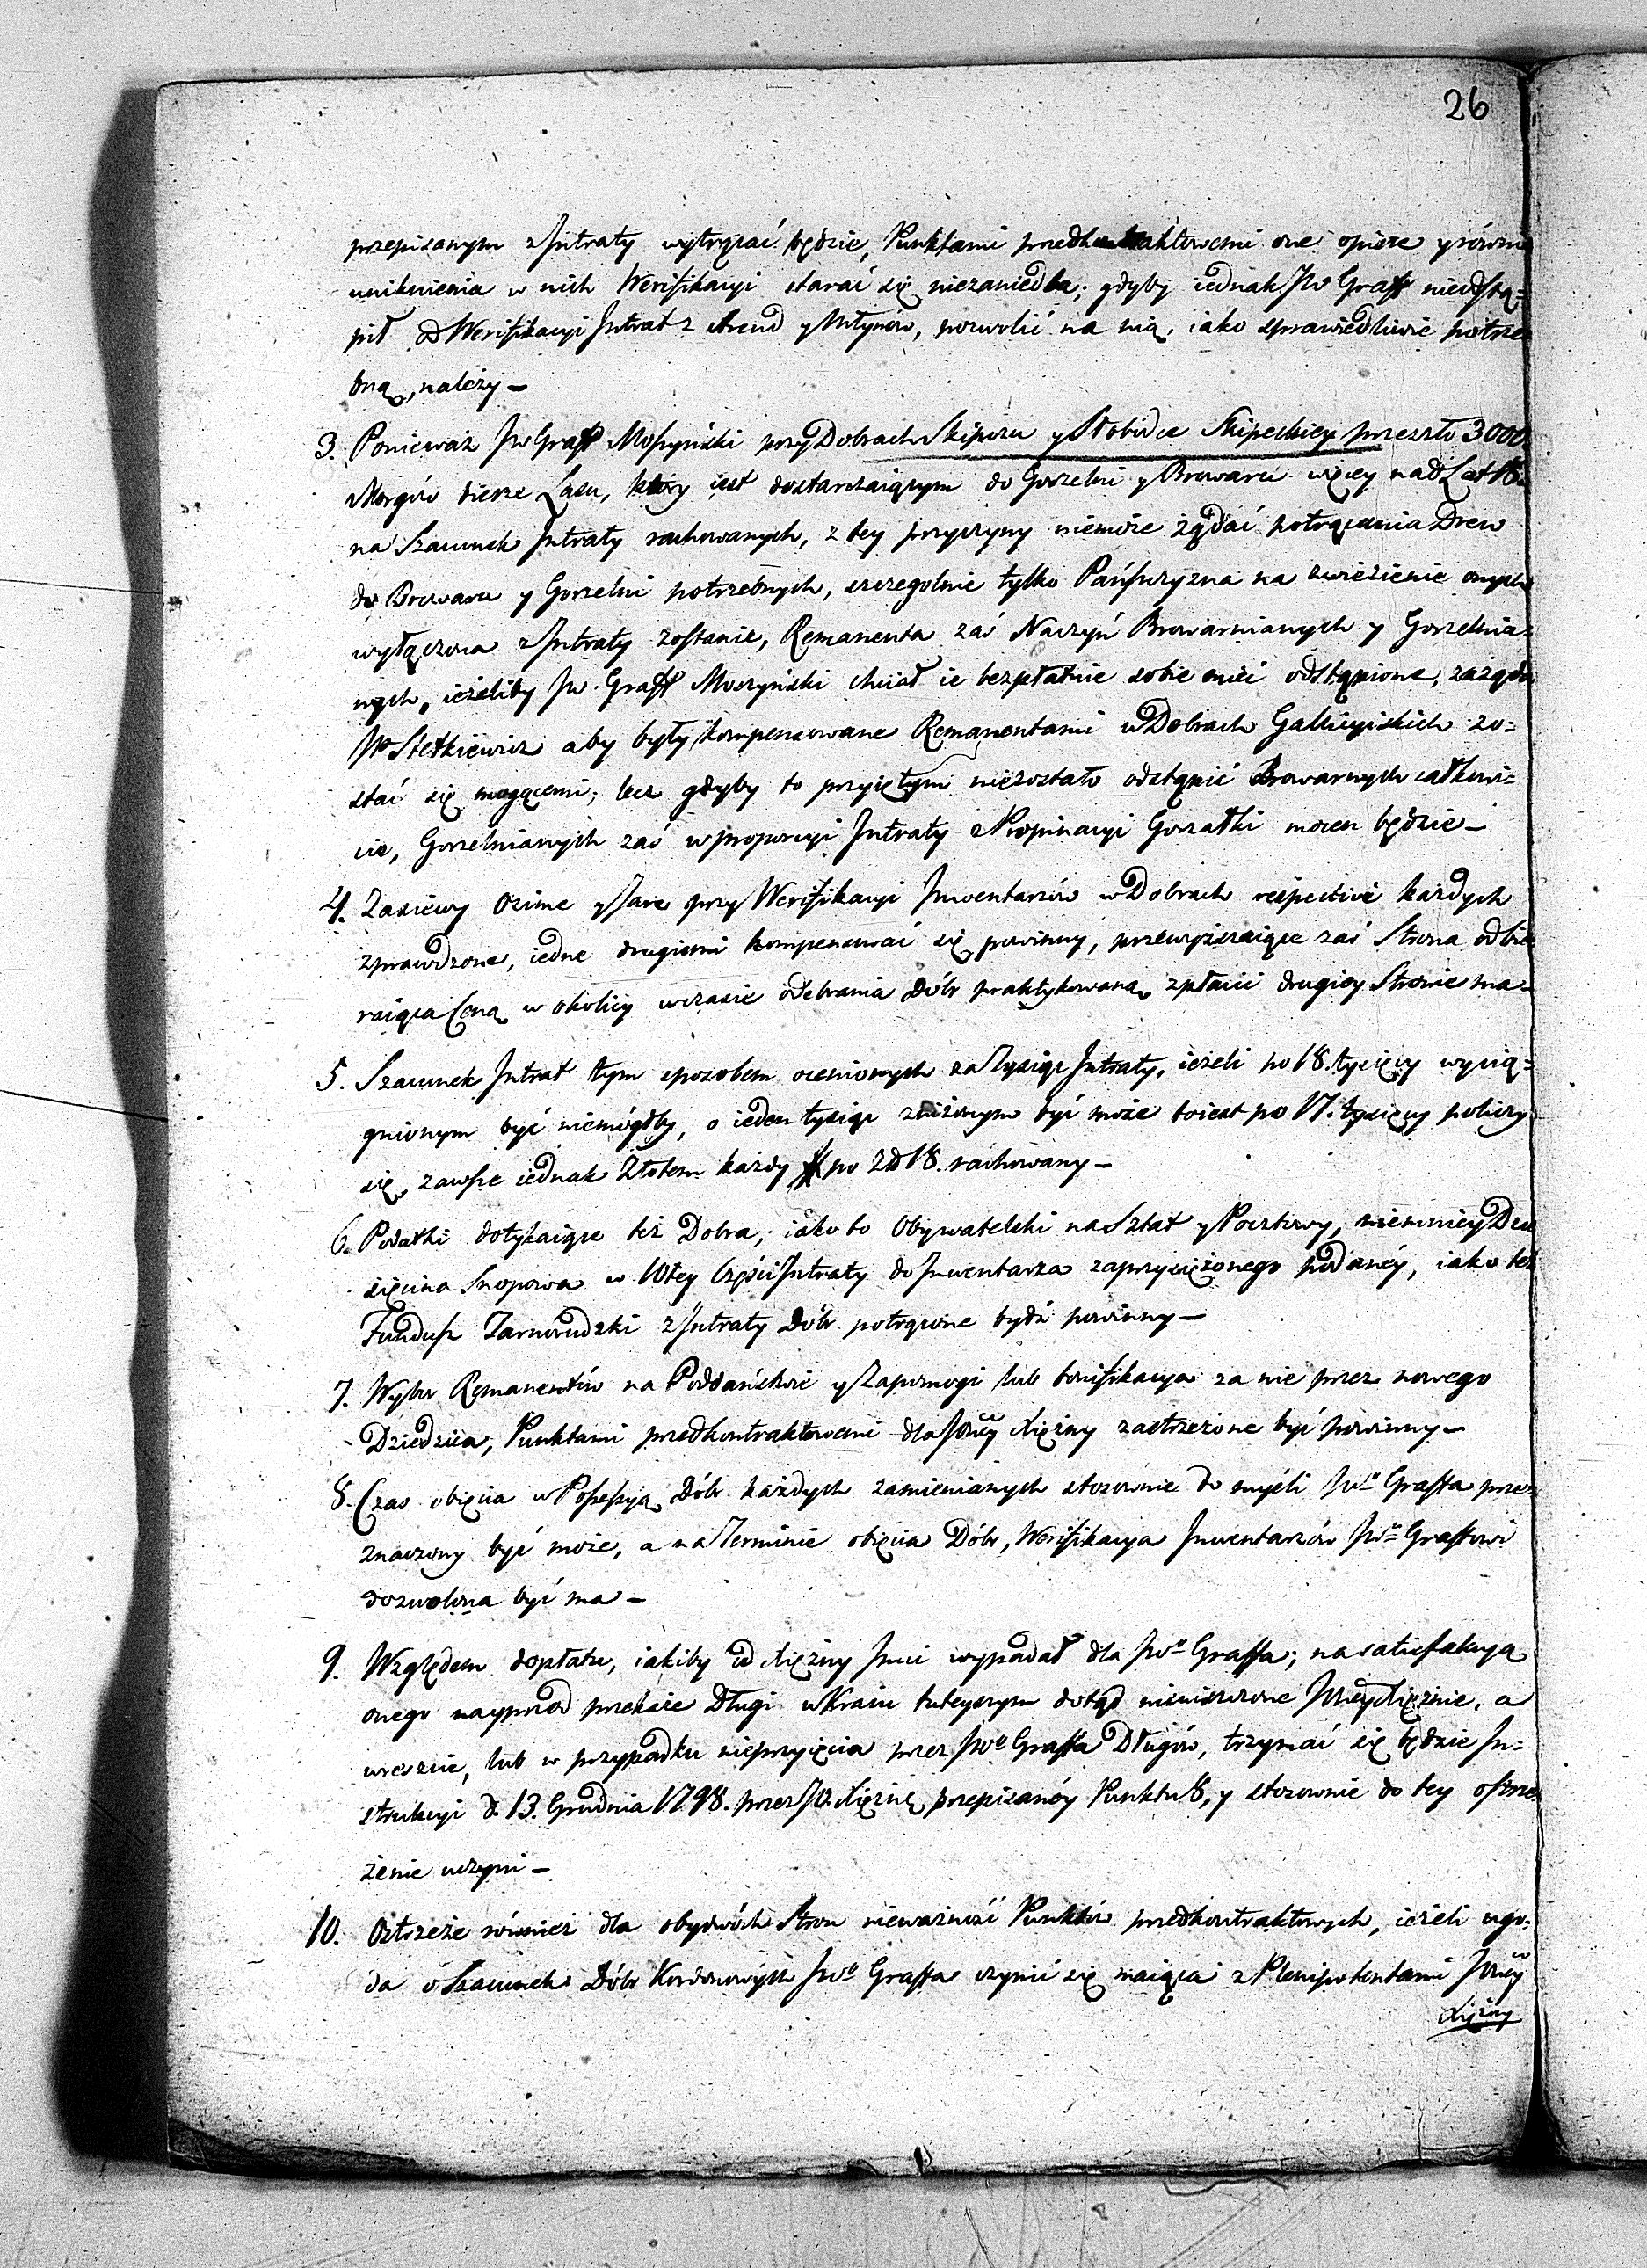 26
przepisanym z Jntraty wytrącać będzie, Punktami przedkontraktowemi one opisze y równie
uniknienia w nich Weryfikacyi starać się niezaniedba; gdyby iednak JW Graff nieodstą=
pił od Weryfikacyi Jntrat z Arend y Młynów, pozwolić na nią, iako sprawiedliwie potrze
bną, należy —
3. Ponieważ JW Graff Moszyński przy Dobrach Skipczu y Słobodce Skipeckiey przeszło 3000
Morgów bierze Lasu, który iest dostarczaiącym do Gorzelni y Browaru więcey nad Lat 18.
na Szacunek Jntraty rachowanych, z tey przyczyny niemoże żądać potrącenia Drew
do Browaru y Gorzelni potrzebnych, szczegolnie tylko Pańszczyzna na zwiezienie onych
wyłączona z Jntraty zostanie, Remanenta zaś Naczyń Browarnianych y Gorzelnia=
nych, ieżeliby JW. Graff Moszyński chciał ie bezpłatnie sobie mieć odstąpione, zażąda
JP Stetkiewicz aby były kompensowane Remanentami w Dobrach Gallicyiskich zo=
stać się mogącemi; lecz gdyby to przyiętym niezostało odstąpić Browarnych całkowi=
cie, Gorzelnianych zaś w proporcyi Jntraty z Propinacyi Gorzałki mocen będzie —
4. Zasiewy Ozime y Jare przy Weryfikacyi Jnwentarzów w Dobrach respective każdych
zprawdzone, iedne drugiemi kompensować się powinny, przewyższaiące zaś Strona odbie
raiąca Ceną w okolicy w czasie odebrania Dóbr praktykowaną, zpłacić drugiey Stronie ma —
5. Szacunek Jntrat tym sposobem ocenionych za Tysiąc Jntraty, ieżeli po 18. tysięcy wycią=
gnionym być niemógłby, o ieden tysiąc zniżonym być może to iest po 17. tysięcy policzy
się, zawsze iednak Złotem każdy # po Zł 18. rachowany —
6. Podatki dotykaiące też Dobra, iako to Obywatelski na Sztat y Pocztowy, niemniey Dzie
sięcina Snopowa w 10tey Części Jntraty do Jnwentarza zaprzysiężonego podanéy, iako też
Fundusz Tarnorudzki z Jntraty Dóbr potrącone bydź powinny —
7. Wybór Remanentów na Poddaństwie y Zapomogi lub bonifikacya za nie przez nowego
Dziedzica, Punktami przedkontraktowemi dla JOney Xiężny zastrzeżone być powinny —
8. Czas obięcia w Possessyą Dóbr każdych zamienianych stosownie do myśli JWo Graffa prze=
znaczony być może, a na Terminie obięcia Dóbr, Weryfikacya Jnwentarzów JWo Graffowi
dozwolona być ma —
9. Względem dopłatu, iakiby od Xiężny Jmci wypadał dla JWo Graffa; na satisfakcyą
onego nayprzod przekaże Długi w Kraiu tuteyszym dotąd nieuiszczone JOney Xiężnie, a
wreszcie, lub w przypadku nieprzyięcia przez JWo Graffa Długów, trzymać się będzie Jn=
strukcyi d. 13. Grudnia 1798. przez JO. Xiężnę przepisanéy Punktu 8, y stosownie do tey ostrze
żenie uczyni —
10. Ostrzeże również dla obydwóch Stron nieważność Punktów przedkontraktowych, ieżeli ugo=
da o Szacunek Dóbr Kordonowych JWo Graffa czynić się maiąca z Plenipotentami JOney
Xiężny